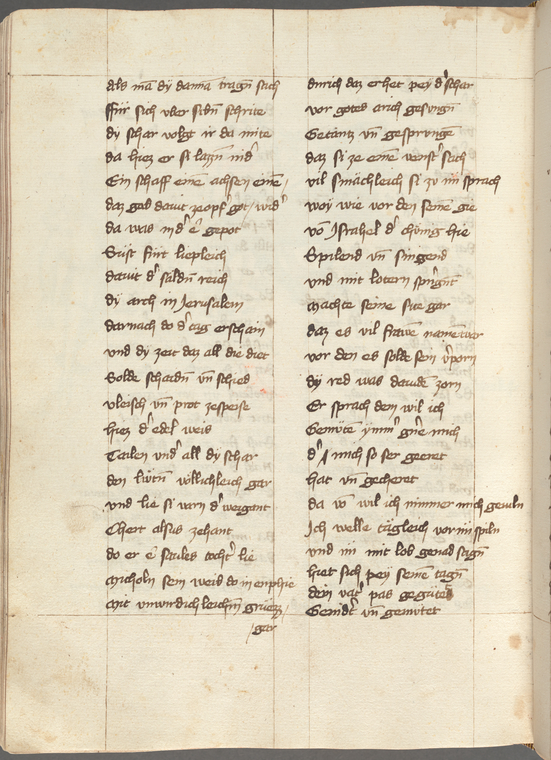 Als mā dy danna tragn̄ sach
ffür sich vber sidn̄ schrite
dy schar volgt ir da mite
da hiez er si lazzn̄ nidʼ
Ein schaff einē achsen einē
daz gab dauit ze opfʼ got widʼ
da was in dʼ ē gepot
Sust fürt liepleich
dauit dʼ sāldn̄ reich
dy arch in Jerusalem
darnach do dʼ tag erschain
vnd dy zeit daz all die diet
Solde schaidn̄ vn̄ schied
vleisch vn̄ prot ze speise
hiez dʼ edel weis
Tailen vndʼ all dy schar
den willichleich gar
vnd lie si varn dʼ weigant
Chert alsus zehant
do er ē Saules tochtʼ lie
Micholn sein weib do in enphie
Mit vnwirdichleichn̄ grüezz
gar
durich daz er het pey dʼ schar
vor gotes arich gesūgn̄
Getantz vn̄ gesprungē
daz si ze einē venstʼ sach
vil smāchleich si zu im sprach
woy wie vor den seinē gie
vō Jsrahel dʼ chünig hie
Spilend vn̄ singend
vnd mit lotern springn̄t
Machte seine site gar
daz es vil frawē namē war
vor den es solde sein vʼporn
dy red was dauide zorn
Er sprach dem wil ich
Gemüte ymmʼ gʼne mich
dʼ mich so ser geeret
hat vn̄ gecheret
da vō wil ich nimmer mich geuiln
Ich welle tāgleich vor im spiln
vnd im mit lob genad sagn̄
hiet sich pey seinē tagn̄
dein vatʼ pas gegütet
Genidʼt vn̄ gemütet